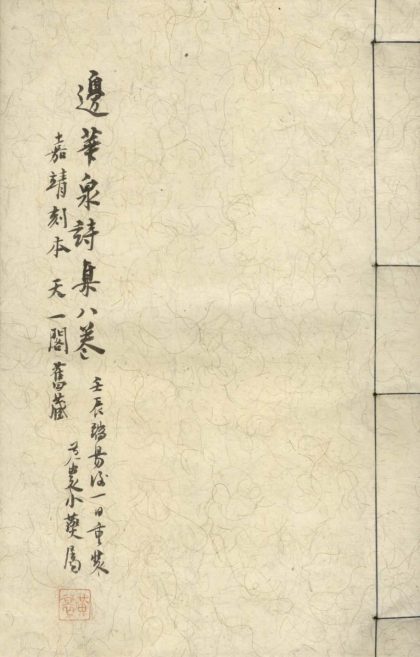 邊華泉詩集八卷
嘉靖刻本 天一閣舊藏
壬辰端昜後一日重裝
黃裳小燕屬